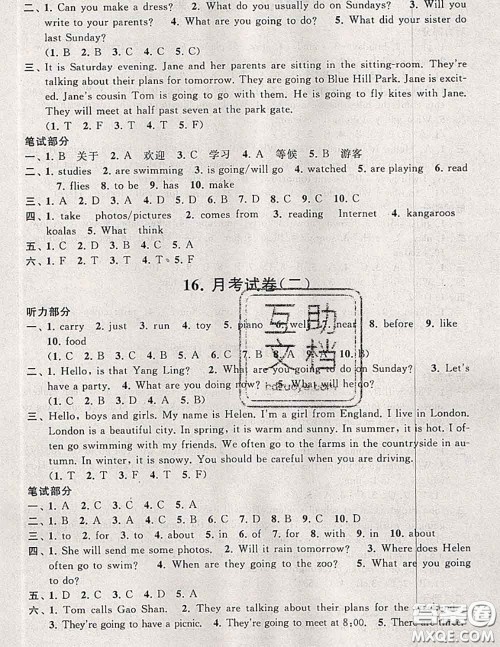 二、1. Can you make a dress? 2. What do you usually do on Sundays? 3. Will you
write to your parents? 4. What are you going to do? 5. What did your sister do
last Sunday?
(1. B 2. C 3. A 4. B 5. A)
三、It is Saturday evening. Jane and her parents are sitting in the sitting-room. They're
talking about their plans for tomorrow. They are going to Blue Hill Park. Jane is excit-
ed. Jane's cousin Tom is going to go with them. He is going to fly kites with Jane.
They will meet at half past seven at the park gate.
(1. T 2. F 3. T 4. T 5. F)
笔试部分
一、1. B 关于 2. A 欢迎 3. C 学习 4. A 等候 5. B 游客
二、1. studies 2. are swimming 3. is going/will go 4. watched 5. are playing 6. read
7. flies 8. to be 9. has 10. make
三、1. A 2. D 3. B 4. C 5. A 6. D 7. B 8. A 9. C 10. C
四、1. take photos/pictures 2. comes from 3. reading Internet 4. kangaroos
koalas 5. What think
五、1. C 2. D 3. D 4. C 5. A
六、1. F 2. T 3. T 4. F 5. F
16. 月考试卷(二)
听力部分
一、1. carry 2. just 3. run 4. toy 5. piano 6. well 7. near 8. before 9. like
10. food
(1. B 2. C 3. A 4. B 5. A 6. C 7. B 8. A 9. A 10. C)
二、1. Hello, is that Yang Ling? 2. What are you going to do on Sunday? 3. Let's
have a party. 4. What are you doing now? 5. What will he do?
(1. C 2. A 3. B 4. A 5. C)
三、Hello, boys and girls. My name is Helen. I'm a girl from England. I live in London.
London is a beautiful city. In spring, it is warm. In summer, it is hot. I of-
ten go swimming with my friends. We often go to the farms in the countryside in au-
tumn. In winter, it is snowy. You should be careful when you are driving.
(1. T 2. F 3. F 4. T 5. F)
笔试部分
一、1. A 2. C 3. C 4. A 5. C
二、1. D 2. C 3. A 4. C 5. B 6. C 7. D 8. B 9. C 10. D
三、1. to 2. for 3. to 4. about 5. in 6. of 7. about 8. from 9. with 10. about
四、1. She will send me some photos. 2. Will it rain tomorrow? 3. Where does Helen
often go to swim? 4. When are they going to the zoo? 5. What are you going
to do?
五、1. C 2. D 3. A 4. A 5. A
六、1. Tom calls Gao Shan. 2. They are talking about their plans for the
3. They're going to have a picnic. 4. They're going to meet at 8:00. 5. There are three.
互助
文档
答案圈
MXQE.COM